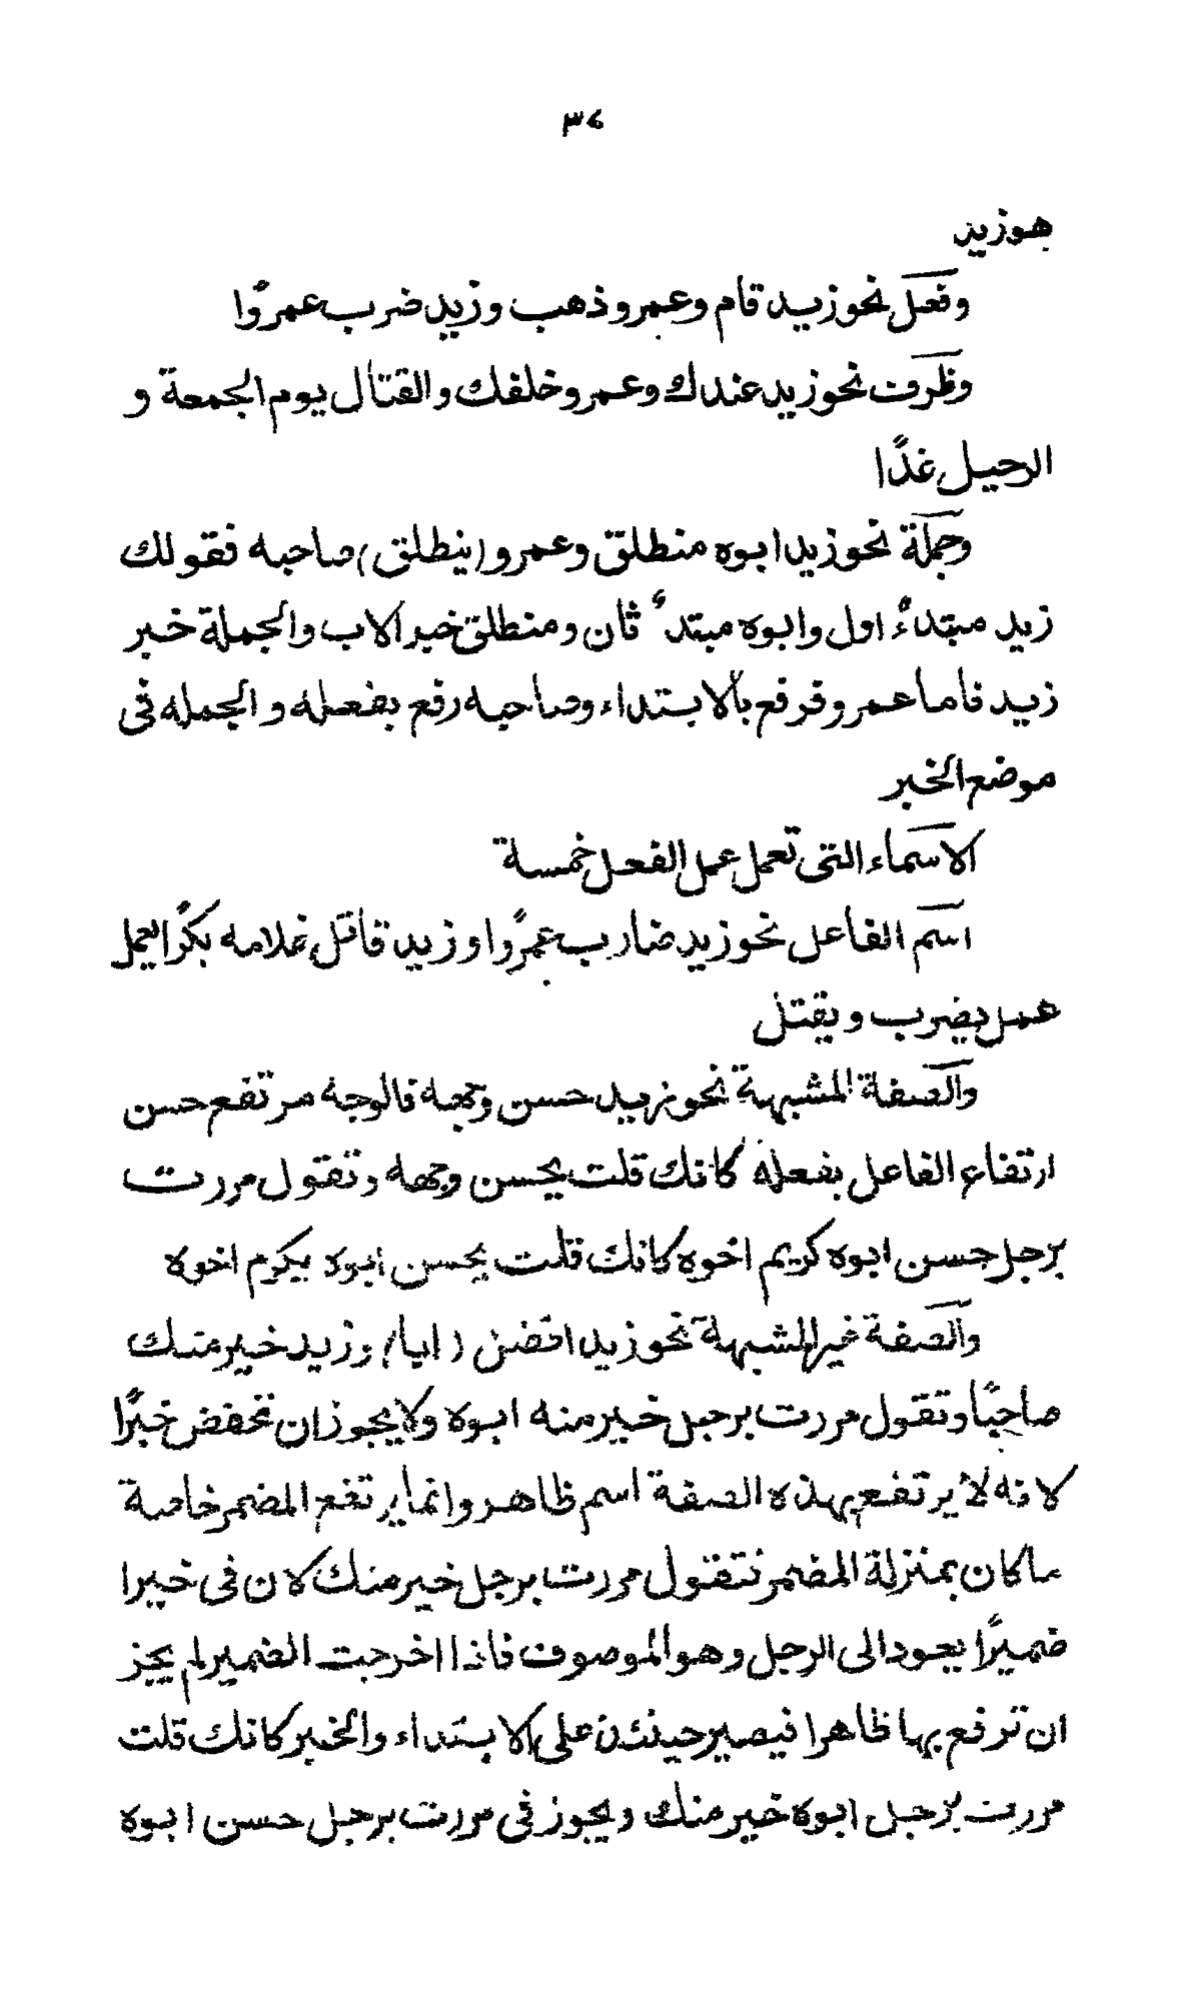 ٣٤
هو زيد
وفعل نحو زيد قام وعمرو ذهب وزيد ضرب عمرًوا
وظرف نحو زيد عندك وعمرو خلفك والقتال يوم الجمعة و
الرحيل غدًا
وجملة نحو زيد ابوه منطلق وعمرو (ينطلق) صاحبه فقولك
زيد مبتدءٌ اول وابوه مبتدءٌ ثان ومنطلق خبر الاب والجملة خبر
زيد فاما عمرو فرفع بالابتداء وصاحبه رفع بفعله والجمله في
موضع الخبر
الاسماء التي تعمل عمل الفعل خمسة
اسم الفاعل نحو زيد ضارب عمرًوا وزيد قاتل غلامه بكرًا يعمل
عمل يضرب ويقتل
والصفة المشبهة نحو زيد حسن وجهه فالوجه مرتفع حسن
ارتفاع الفاعل بفعله كانك قلت يحسن وجهه وتقول مررت
برجل حسن ابوه كريم اخوه كانك قلت يحسن ابوه يكرم اخوه
والصفة غير المشبهة نحو زيد افضل (ابا) وزيد خير منك
صاحبًا وتقول مررت برجل خير منه ابوه ولا يجوز ان تخفض خبرًا
لانه لا يرتفع بهذه الصفة اسم ظاهر وانما يرتفع المضمر خاصة
ما كان بمنزلة المضمر فتقول مررت برجل خير منك لان في خيرا
ضميرًا يعود الى الرجل وهو الموصوف فاذا اخرجت الضمير لم يجز
ان ترفع بها ظاهرا فيصير حينئذ على الابتداء والخبر كانك قلت
مررت برجل ابوه خير منك ويجوز في مررت برجل حسن ابوه